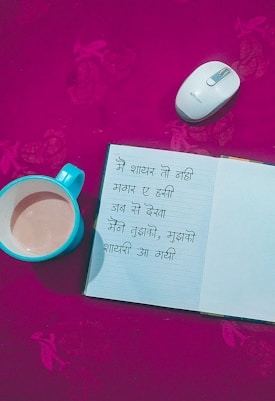 मै शायर तो नही
मगर ए हसी
जब से देखा
मैने तुझको, मुझको
शायरी आ गयी